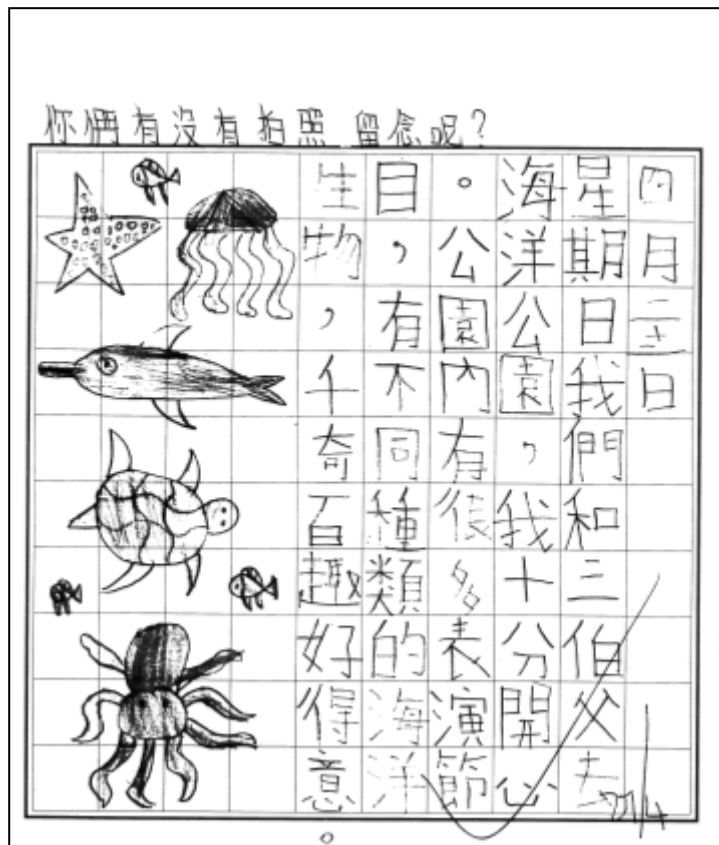 你倆有沒有拍照留念呢?
四月日
星期日我們和三伯父去
海洋公園，我十分開心
。公園內有很多表演節
目，有不同種類的海洋
生物，千奇百趣好得意。